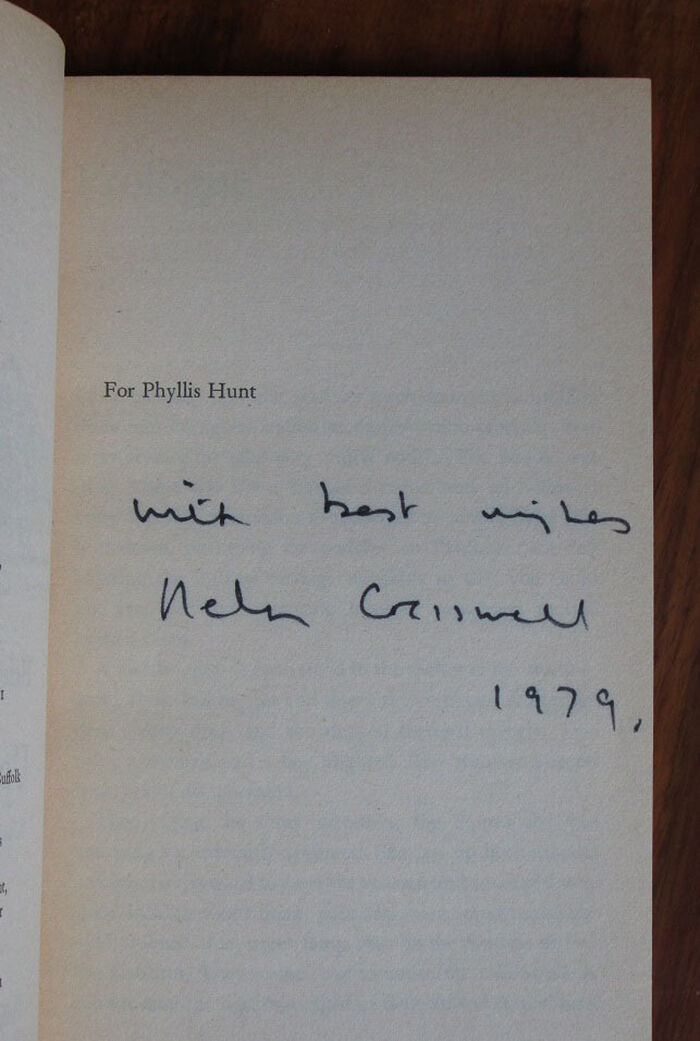 For Phyllis Hunt
with best wishes
Helen Cresswell
1979.
Suffolk